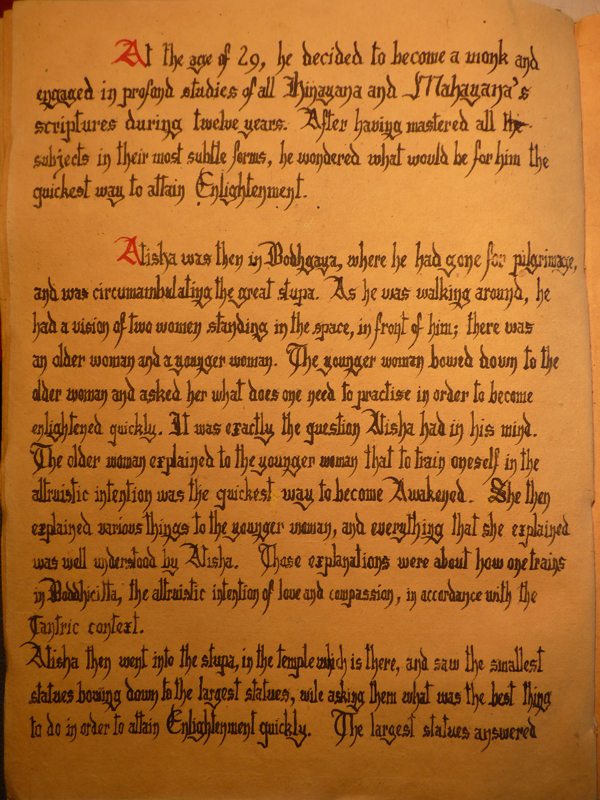 At the age of 29, he decided to become a monk and
engaged in profond studies of all Hinayana and Mahayana's
scriptures during twelve years. After having mastered all the
subjects in their most subtle forms, he wondered what would be for him the
quickest way to attain Enlightenment.
Atisha was then in Bodhgaya, where he had gone for pilgrimage,
and was circumambulating the great stupa. As he was walking around, he
had a vision of two women standing in the space, in front of him; there was
an older woman and a younger woman. The younger woman bowed down to the
older woman and asked her what does one need to practise in order to become
enlightened quickly. It was exactly the question Atisha had in his mind.
The older woman explained to the younger woman that to train oneself in the
altruistic intention was the quickest way to become Awakened. She then
explained various things to the younger woman, and everything that she explained
was well understood by Atisha. Those explanations were about how one trains
in Boddhicitta, the altruistic intention of love and compassion, in accordance with the
Tantric context.
Atisha then went into the stupa, in the temple which is there, and saw the smallest
statues bowing down to the largest statues, wile asking them what was the best thing
to do in order to attain Enlightenment quickly. The largest statues answered